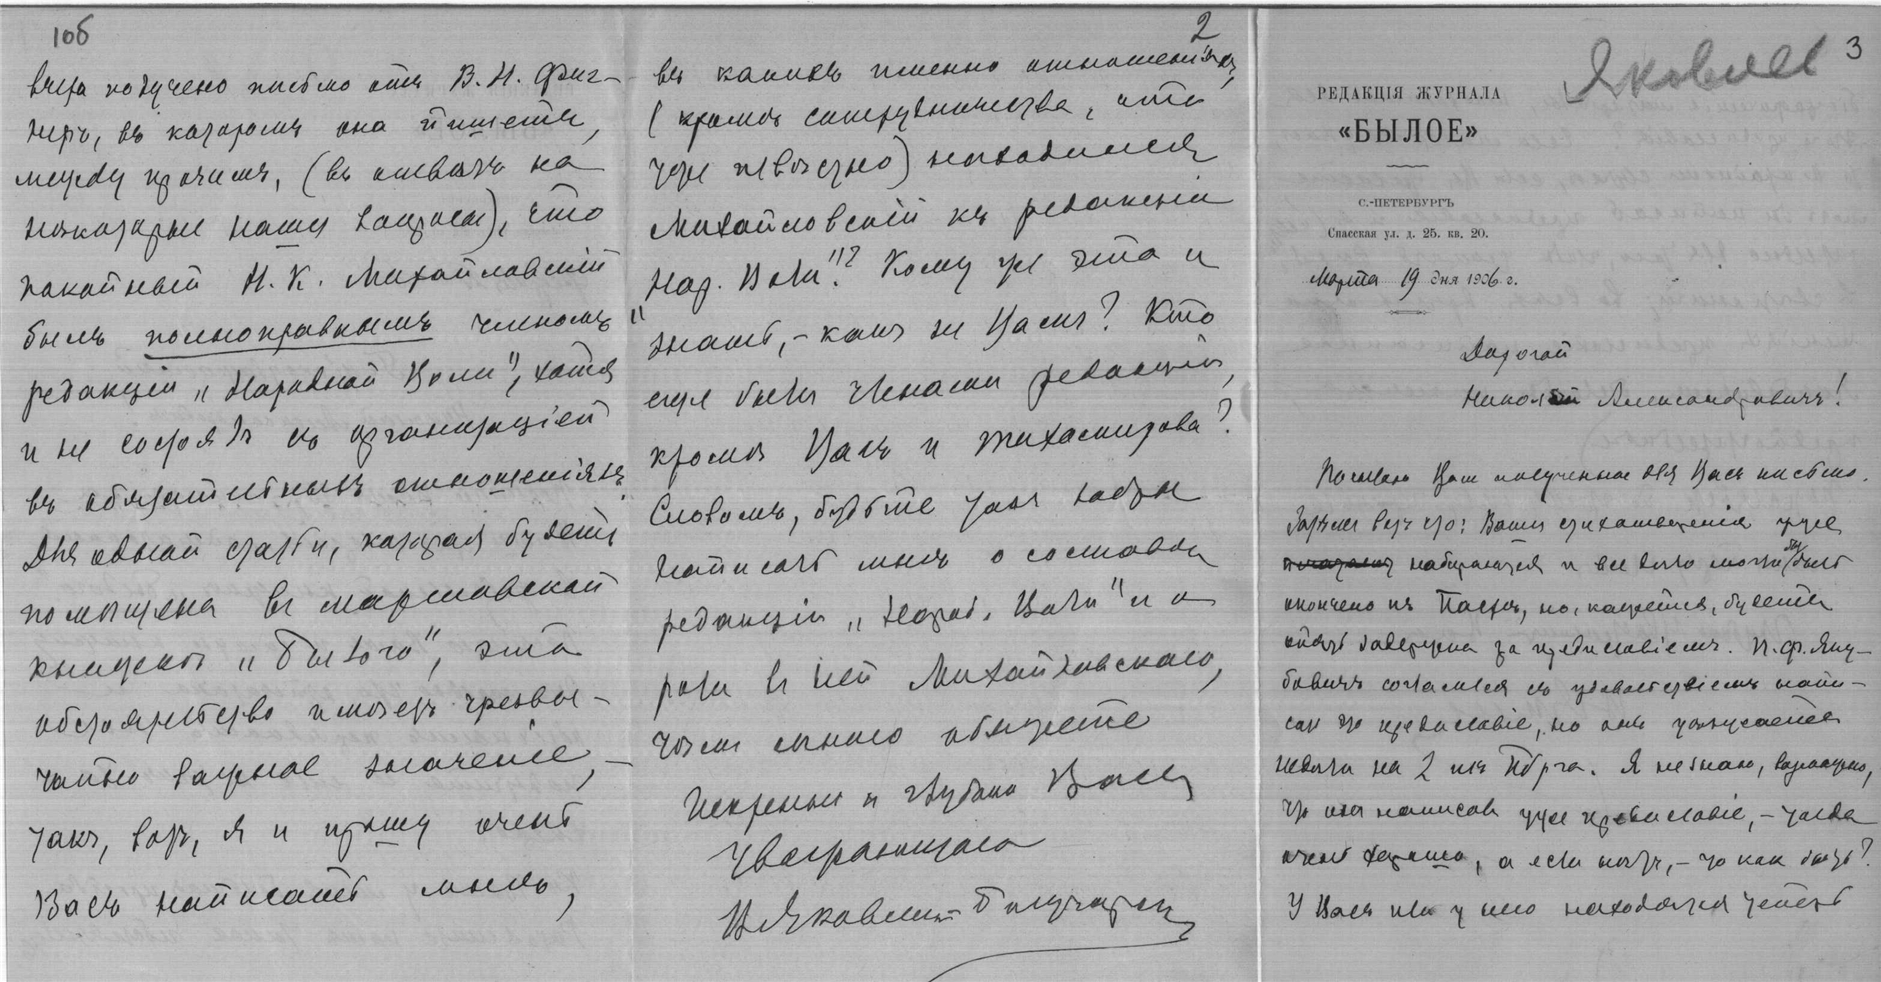 1об
вчера получено письмо отъ В. Н. Фиг-
неръ, въ которомъ она пишетъ,
между прочимъ, (въ отвѣтъ на
нѣкоторые наши вопросы), что
покойный Н. К. Михайловскій
былъ полноправнымъ членомъ
редакціи „Народной Воли", хотя
и не состоялъ съ организаціей
въ обязательныхъ отношеніяхъ.
Для одной статьи, которая будетъ
помѣщена въ мартовской
книжкѣ „Былого", это
обстоятельство имѣетъ чрезвы-
чайно важное значеніе, –
такъ, вотъ, я и прошу очень
Васъ написать мнѣ,
2
въ какихъ именно отношеніяхъ,
(кромѣ сотрудничества, что
уже извѣстно) находился
Михайловскій къ редакціи
„Нар. Воли"? Кому же это и
знать, – какъ не Вамъ? Кто
еще были членами редакціи,
кромѣ Васъ и Тихомирова?
Словомъ, будьте такъ добры
написать мнѣ о составѣ
редакціи „Народ. Воли" и о
роли въ ней Михайловскаго,
чѣмъ сильно обяжете
искренно и глубоко Васъ
уважающаго
В. Яковлев-Богучарск
Яковлев 3
РЕДАКЦІЯ ЖУРНАЛА
«БЫЛОЕ»
С.-ПЕТЕРБУРГЪ
Спасская ул. д. 25. кв. 20.
Марта 19 дня 1906 г.
Дорогой
Николай Александровичъ!
Посылаю Вам полученное для Васъ письмо.
Затѣмъ вотъ что: Ваши стихотворенія уже
набираются и все дѣло могло бы быть
окончено къ Пасхѣ, но, кажется, будетъ
опять задержка за предисловіемъ. П. Ф. Яку-
бовичъ согласился съ удовольствіемъ напи-
сать предисловіе, но онъ уѣхалъ
недѣли на 2 изъ Пбрга. Я не знаю, возможно,
что онъ написалъ уже предисловіе, – тогда
очень хорошо, а если нѣтъ, – то как быть?
У Васъ или у него находятся